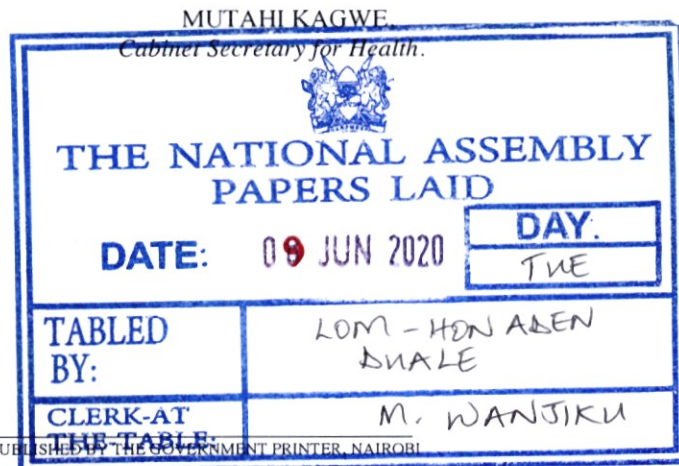 MUTAHI KAGWE,
Cabinet Secretary for Health.
THE NATIONAL ASSEMBLY
PAPERS LAID
DATE: 09 JUN 2020
DAY.
TUE
TABLED
BY:
LOM - HON ADEN
DUALE
CLERK-AT
THE-TABLE:
M. WANJIKU
UBLISHED BY THE GOVERNMENT PRINTER, NAIROBI